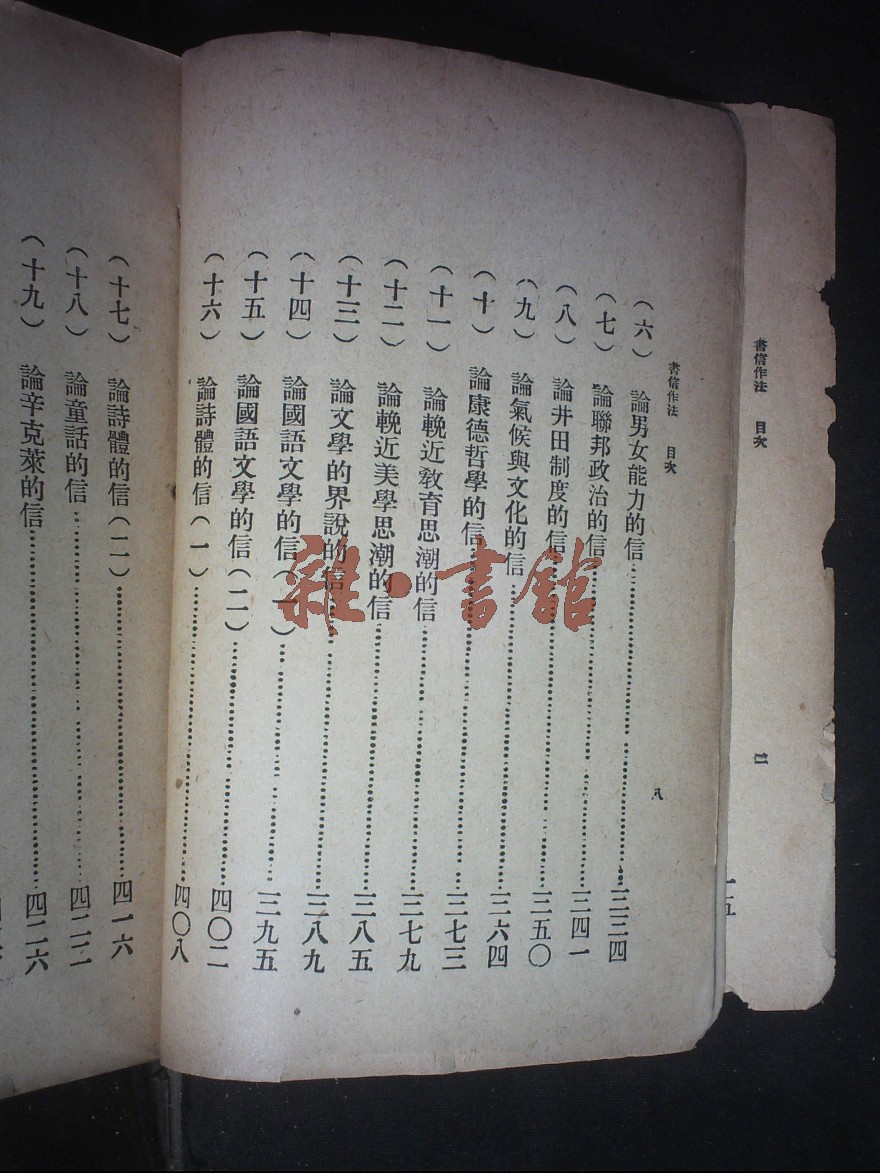 書信作法 目次
書信作法 目次 八
(六) 論男女能力的信……三三四
(七) 論聯邦政治的信……三四一
(八) 論井田制度的信……三五〇
(九) 論氣候與文化的信……三六四
(十) 論康德哲學的信……三七三
(十一) 論輓近教育思潮的信……三七九
(十二) 論輓近美學思潮的信……三八五
(十三) 論文學的界說的信……三八九
(十四) 論國語文學的信(一)……三九五
(十五) 論國語文學的信(二)……四〇二
(十六) 論詩體的信(一)……四〇八
(十七) 論詩體的信(二)……四一六
(十八) 論童話的信……四二二
(十九) 論辛克萊的信……四二六
雜·書館